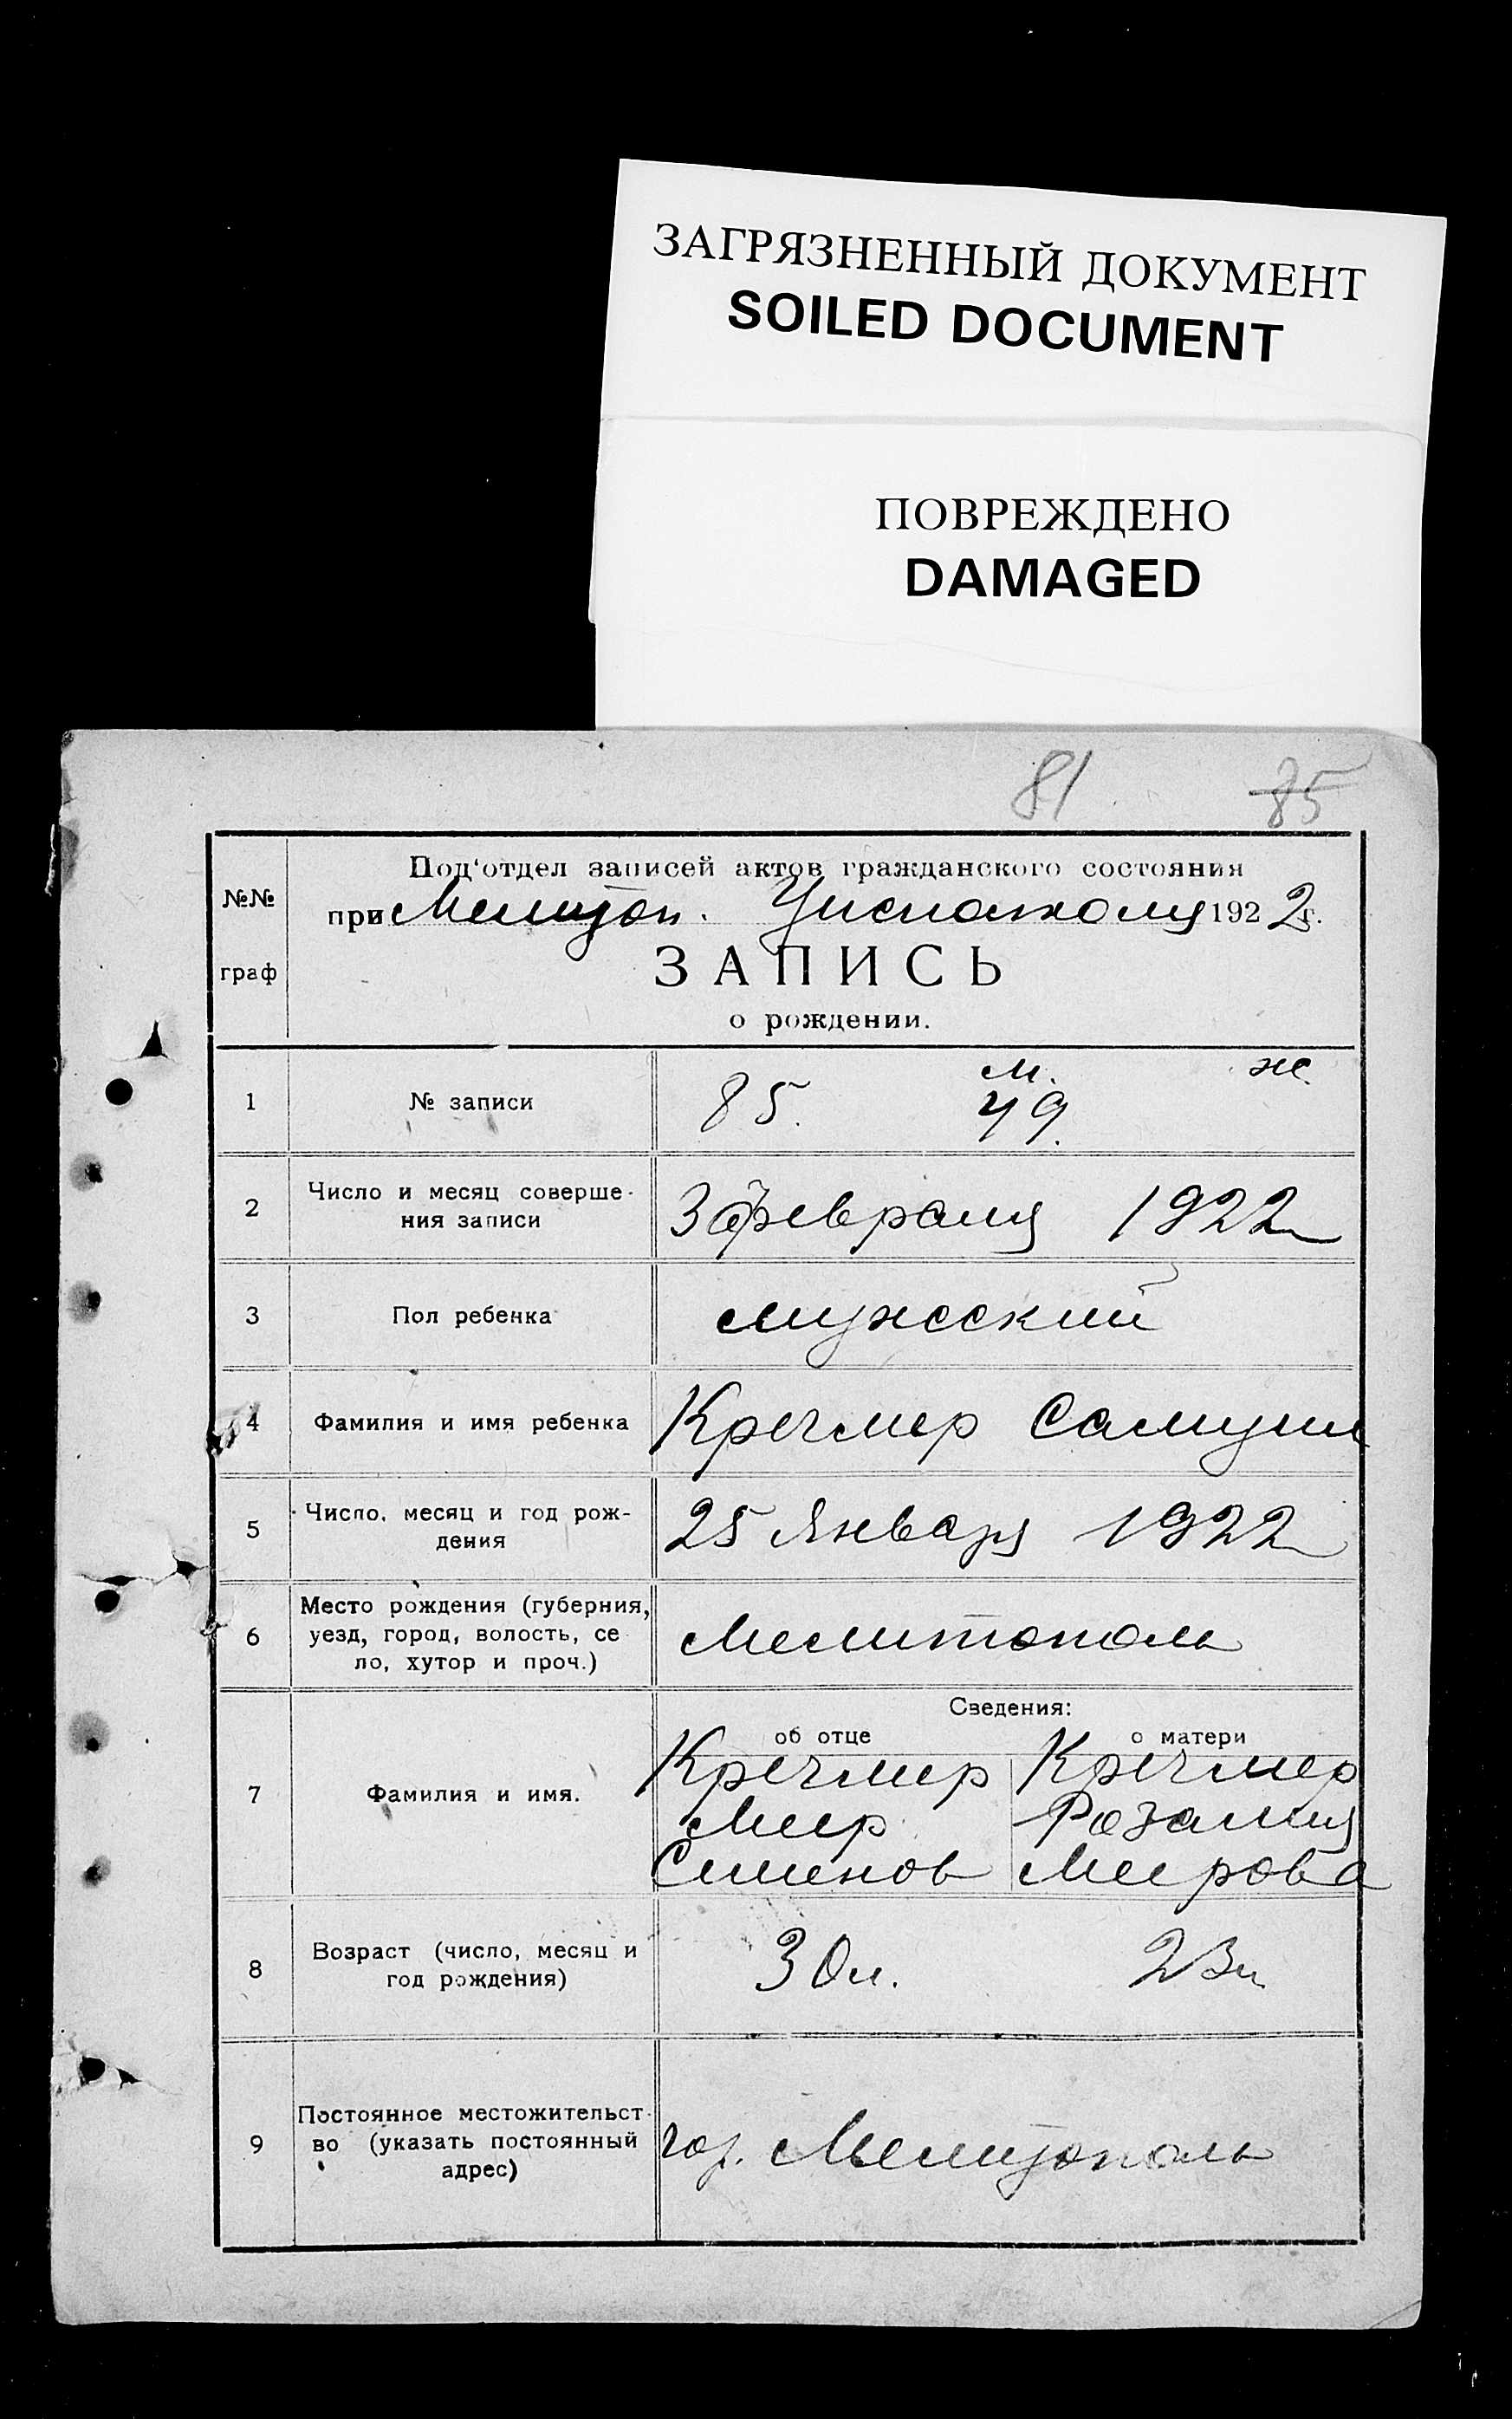 ЗАГРЯЗНЕННЫЙ ДОКУМЕНТ
SOILED DOCUMENT
ПОВРЕЖДЕНО
DAMAGED
81 85
№№
граф
Под'отдел записей актов гражданского состояния
при Мелитоп. Уисполкому 1922 г.
ЗАПИСЬ
о рождении.
м. ж.
1 № записи 85. 49.
2 Число и месяц соверше-
ния записи
3 февраля 1922
3 Пол ребенка мужский
4 Фамилия и имя ребенка Кречмер Самуил
5 Число, месяц и год рож-
дения
25 Января 1922
6 Место рождения (губерния,
уезд, город, волость, се
ло, хутор и проч.)
Мелитополь
Сведения:
об отце о матери
7 Фамилия и имя.
Кречмер Кречмер
Меер Розалия
Семенов Меерова
8 Возраст (число, месяц и
год рождения)
30 л. 23 л
9 Постоянное местожительст-
во (указать постоянный
адрес)
гор. Мелитополь